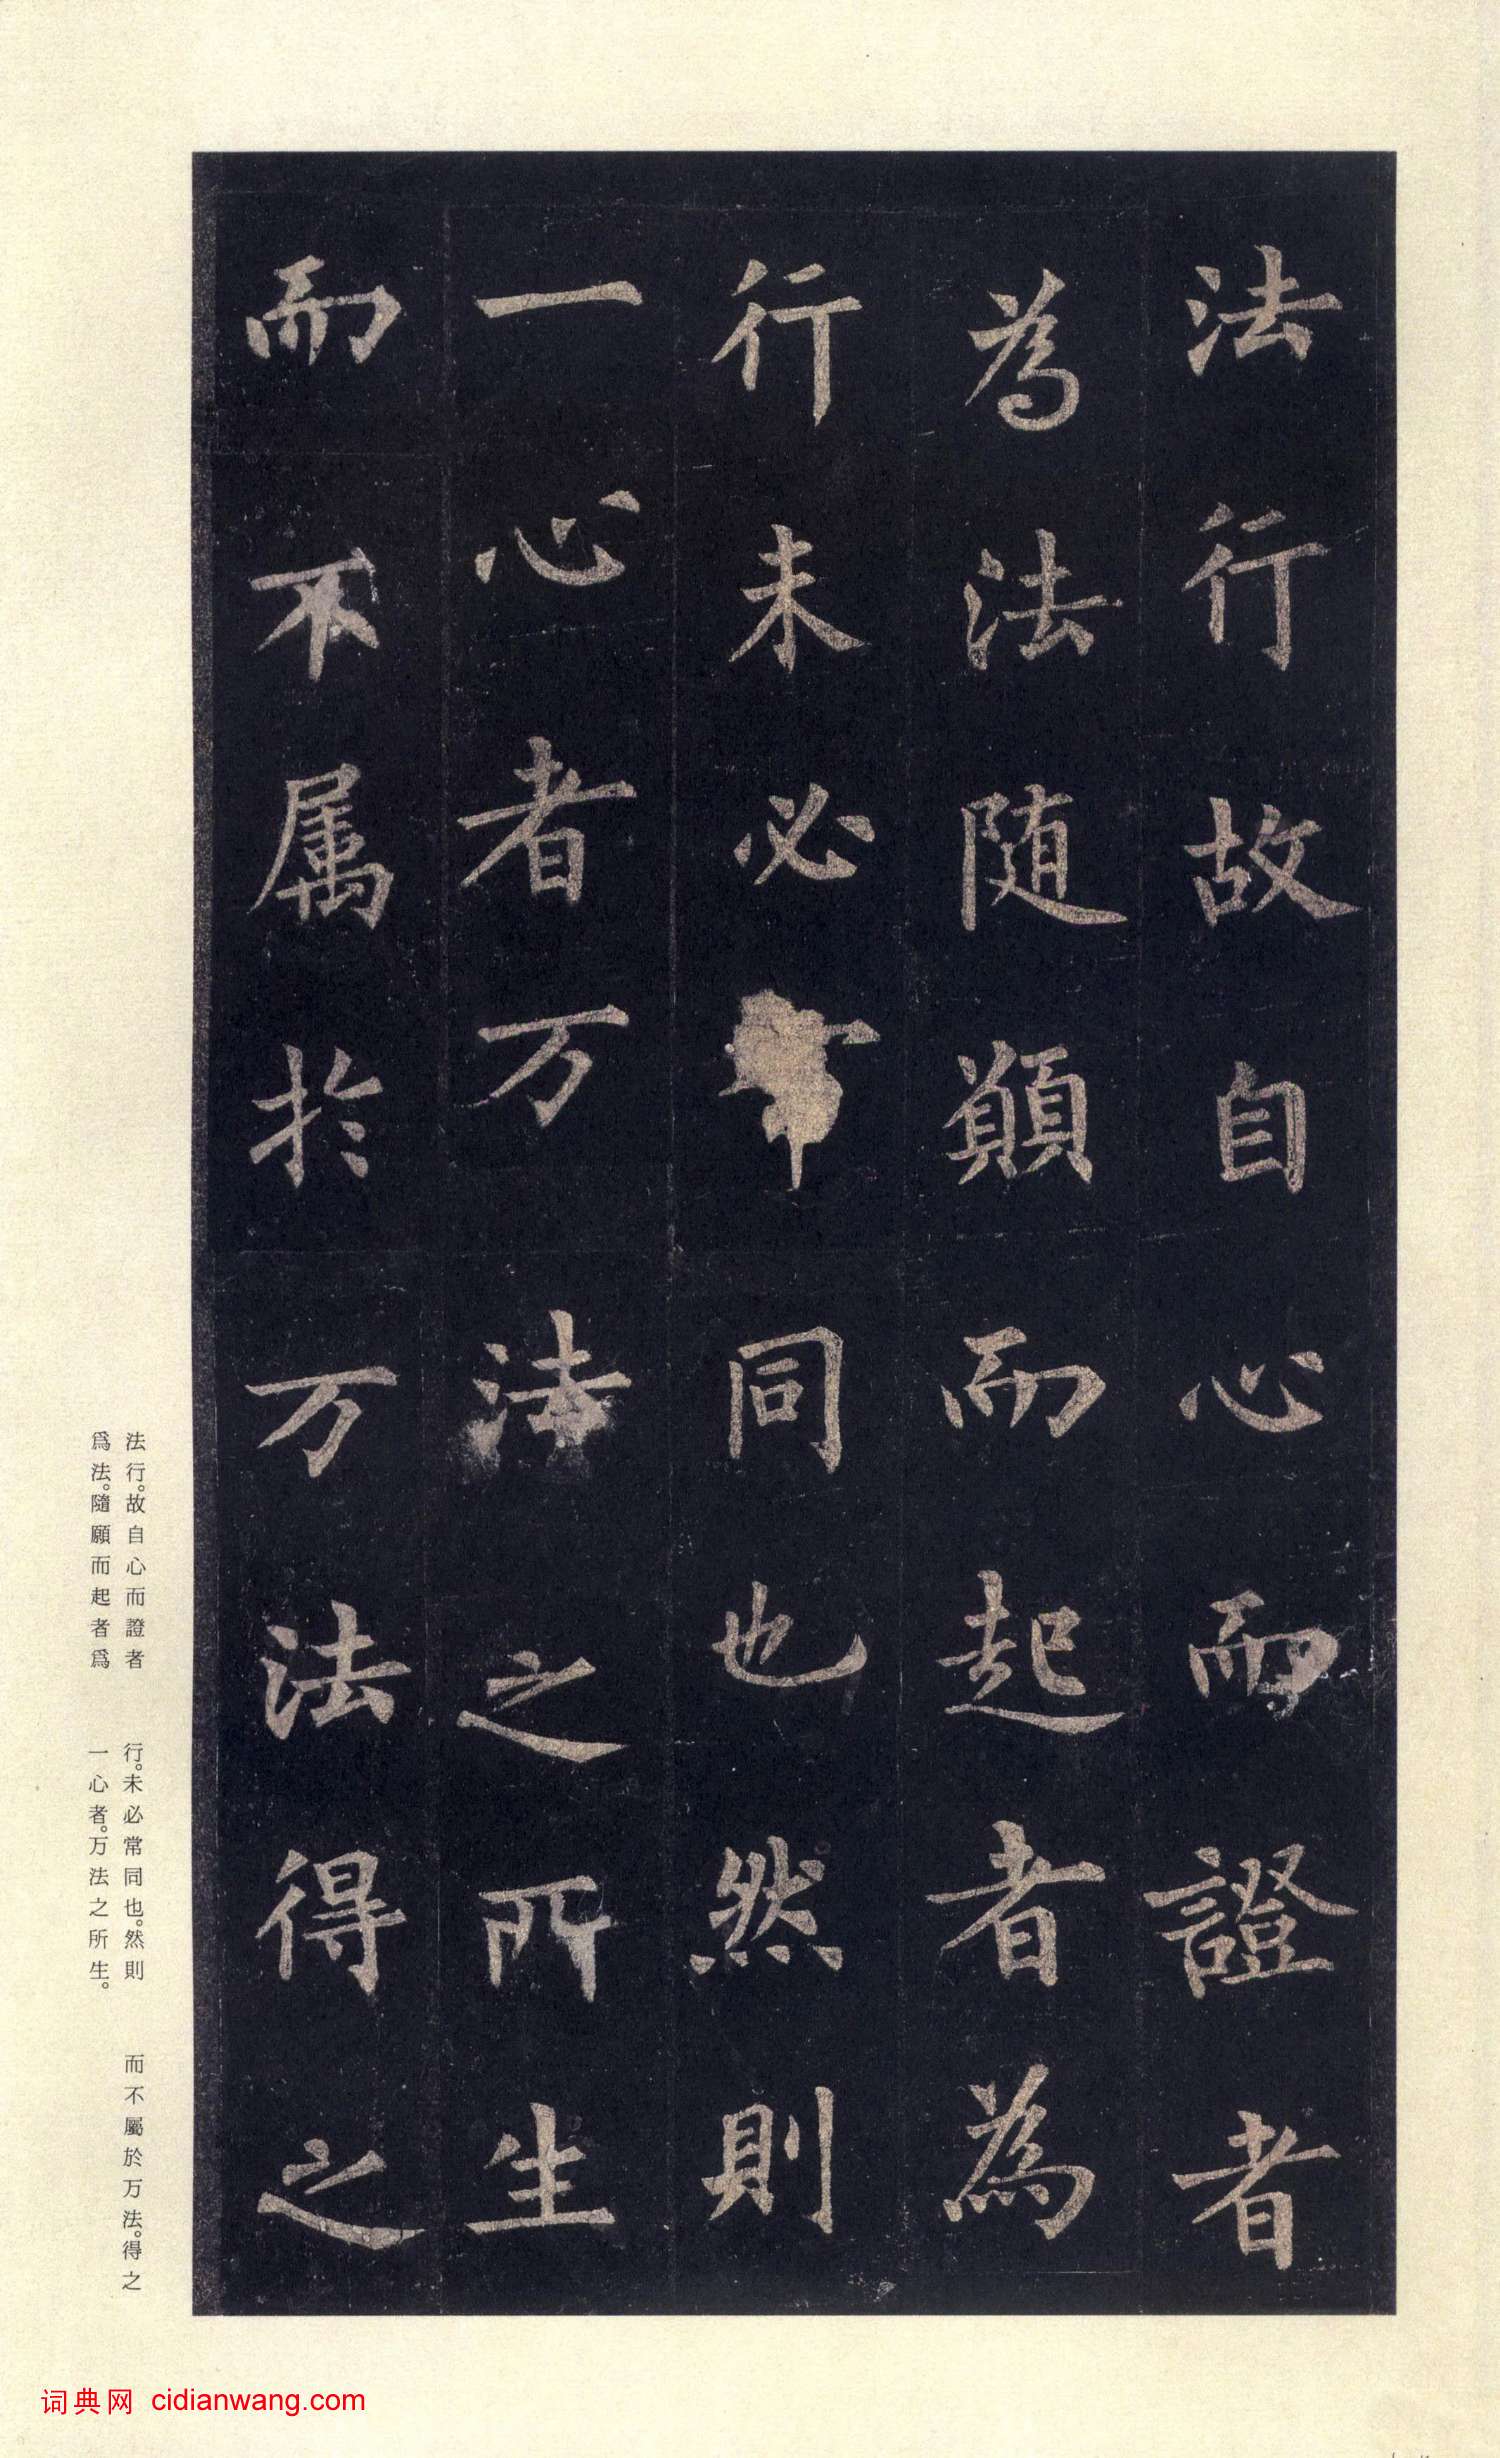 法行故自心而證者
為法随願而起者為
行未必同也然則
一心者万法之所生
而不属於万法得之
法行。故自心而證者
爲法。隨願而起者爲
行。未必常同也。然則
一心者。万法之所生。
而不屬於万法。得之
词典网 cidianwang.com